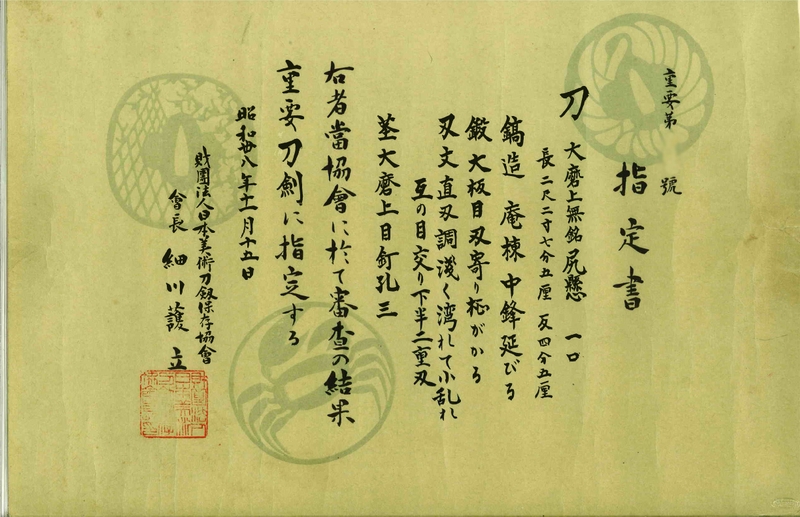 重要第　號
指定書
刀 大磨上無銘尻懸 一口
長二尺二寸七分五厘 反四分五厘
鎬造 庵棟 中鋒延びる
鍛 大板目刃寄り柾がかる
刃文 直刃調浅く湾れて小乱れ
互の目交り下半二重刃
茎 大磨上目釘孔三
右者當協會に於て審査の結果
重要刀剣に指定する
昭和卅八年十一月十五日
財團法人日本美術刀剱保存協會
會長 細川護立